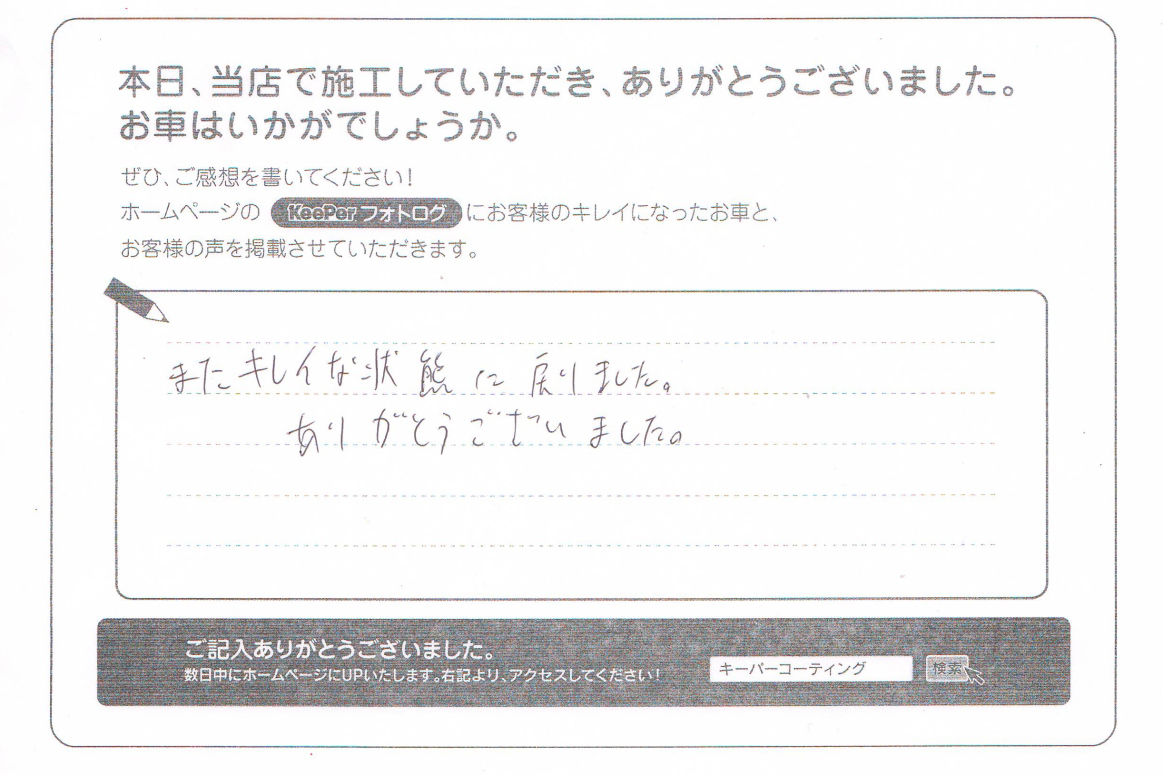 本日、当店で施工していただき、ありがとうございました。
お車はいかがでしょうか。
ぜひ、ご感想を書いてください!
ホームページの KeePer フォトログ にお客様のキレイになったお車と、
お客様の声を掲載させていただきます。
またキレイな状態に戻りました。
ありがとうございました。
ご記入ありがとうございました。
数日中にホームページにUPいたします。右記より、アクセスしてください!
キーパーコーティング 検索